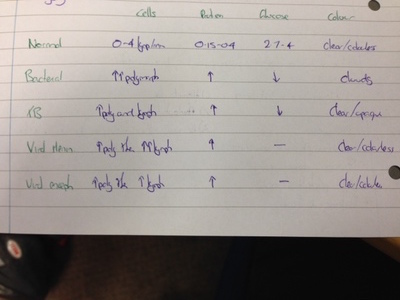 Cells Protein Glucose Colour
Normal 0-4 lymp/mm 0.15-0.4 2.7-4 clear/colourless
Bacterial ↑↑ polymorph ↑ ↓ cloudy
TB ↑ poly and lymph ↑ ↓ clear/opaque
Viral ↑ poly ↑↑ lymph ↑ — clear/colourless
Viral enceph ↑ poly ↑ lymph ↑ — clear/colourless